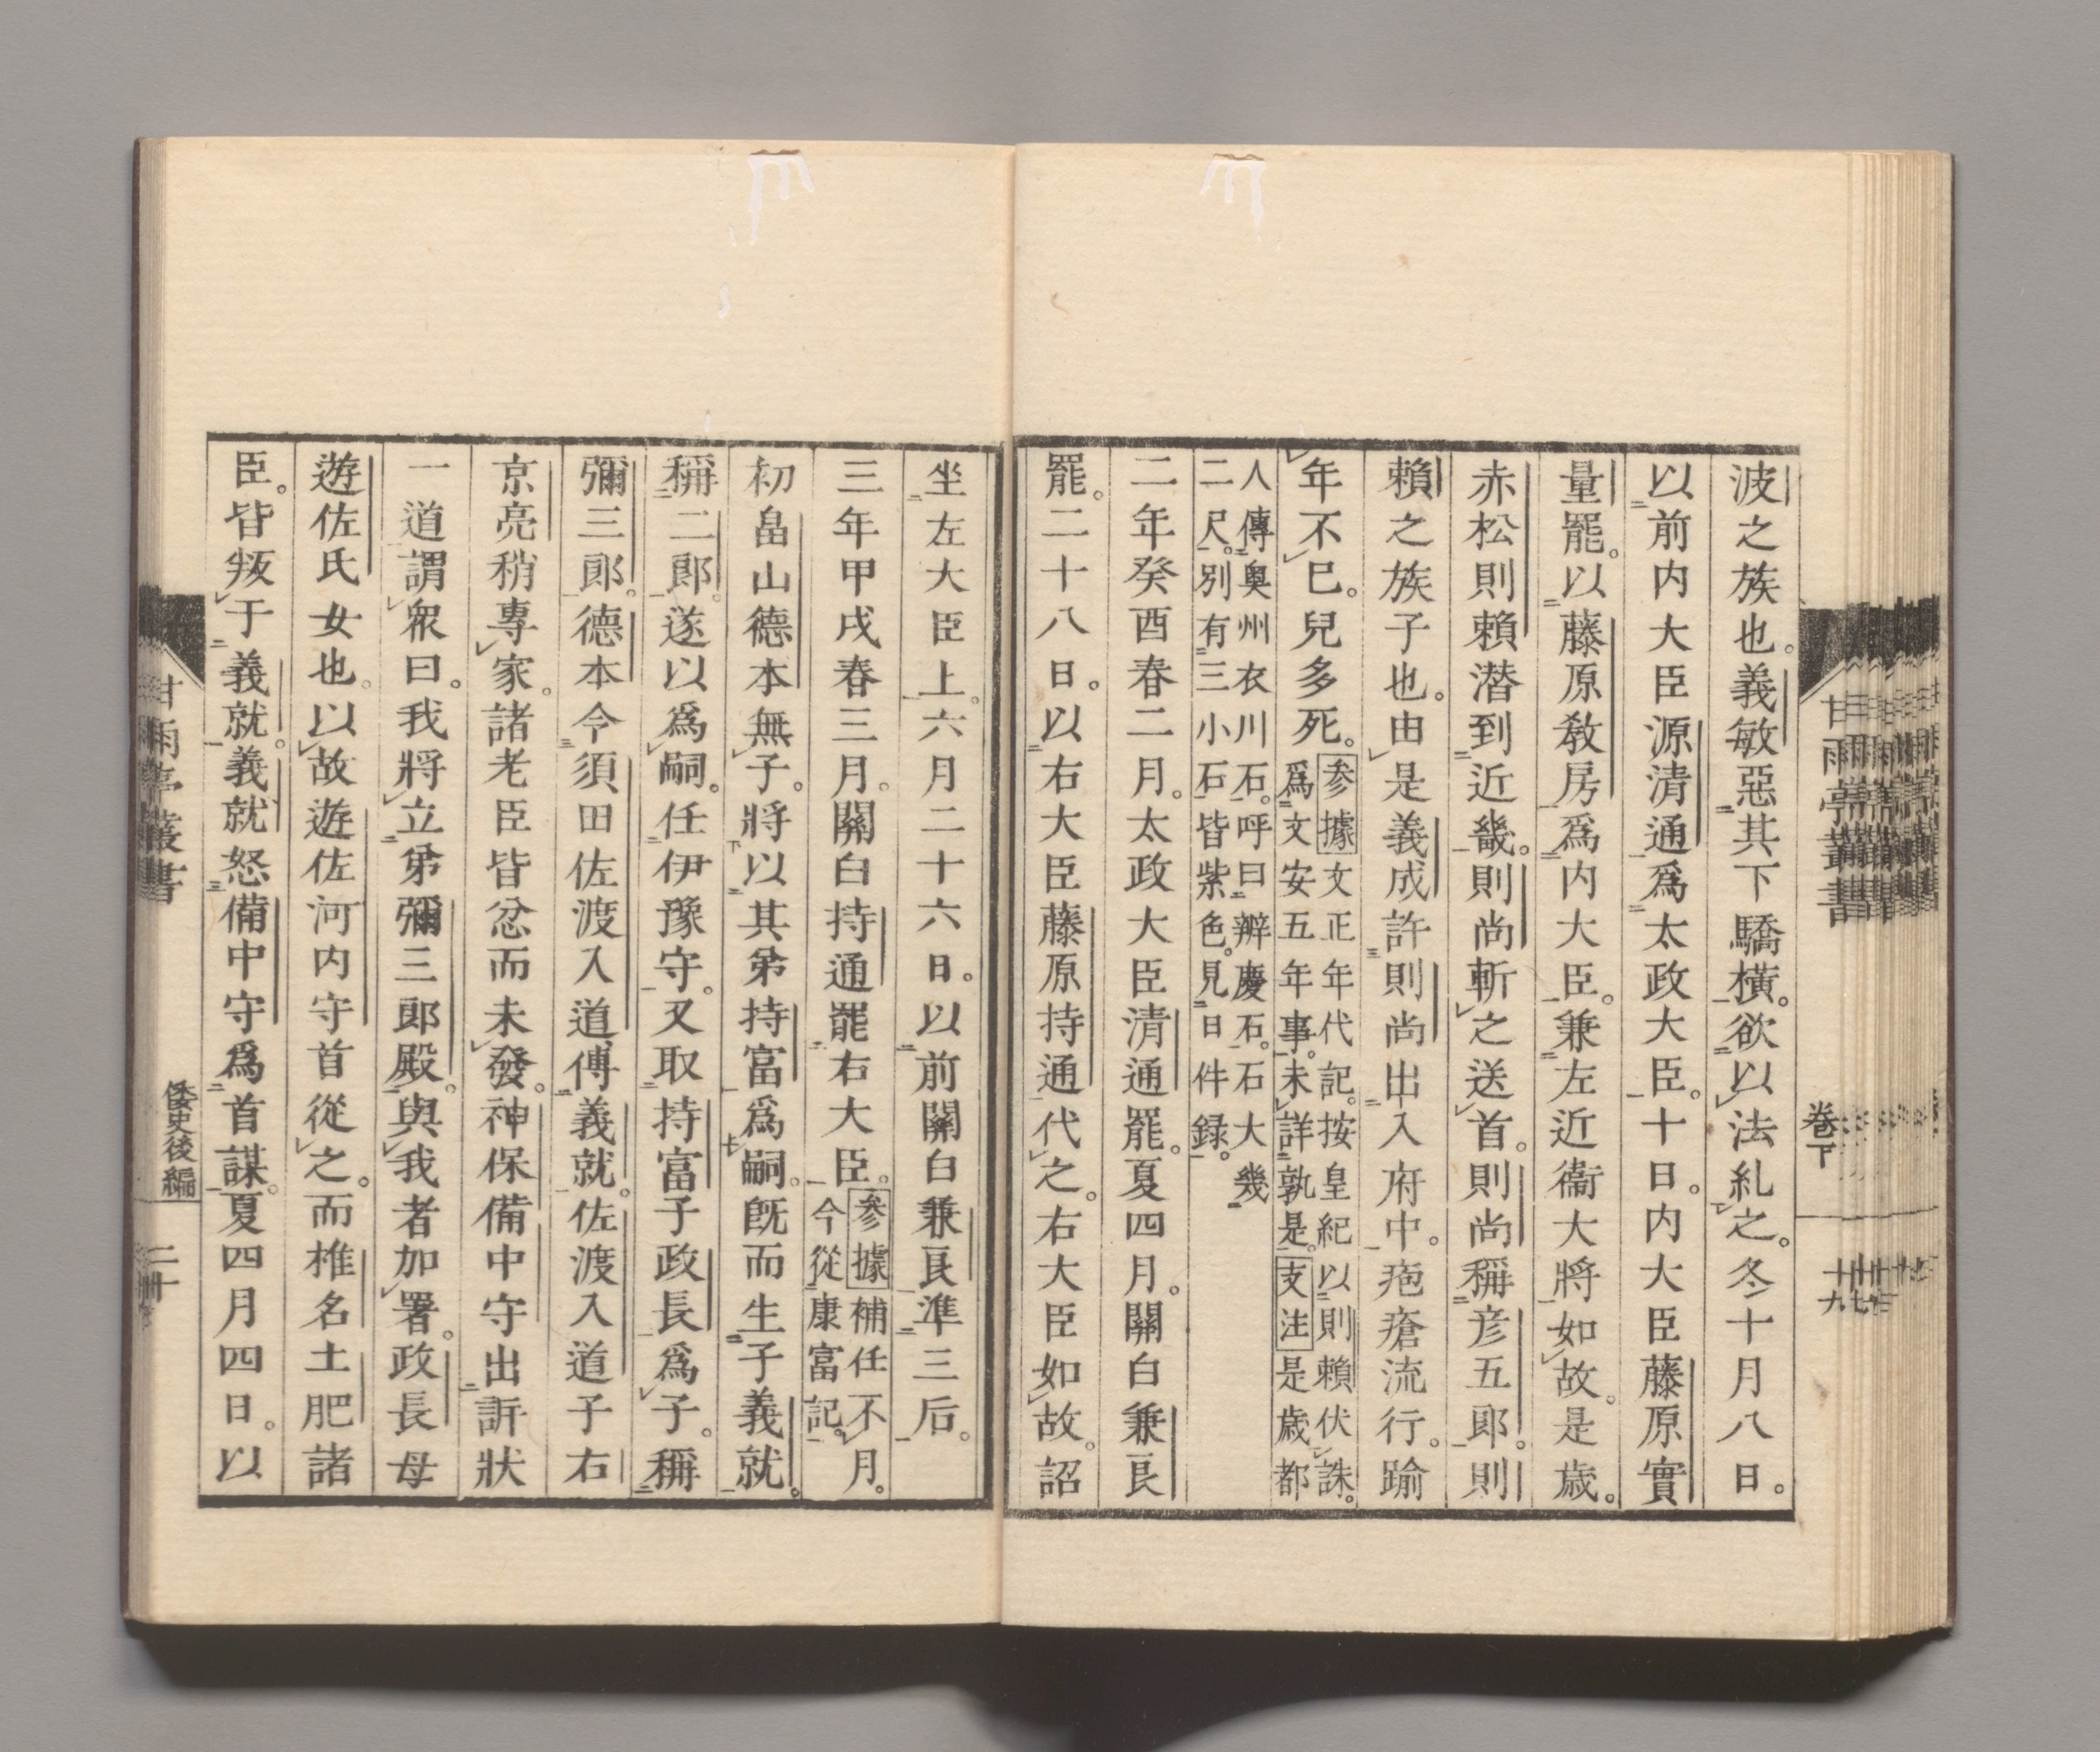 波之族也。義敏惡其下驕橫。欲以法糺之。冬十月八日。
以前内大臣源清通爲太政大臣。十日。内大臣藤原實
量罷。以藤原敎房爲内大臣。兼左近衞大將如故。是歲。
赤松則賴潛到近畿。則尚斬之送首。則尚稱彦五郎。則
賴之族子也。由是義成許則尚出入府中。疱瘡流行。踰
年不已。兒多死。
参據文正年代記。按皇紀以則賴伏誅。
爲文安五年事。未詳孰是。支注是歲都
人傳奥州衣川石。呼曰辨慶石。石大幾
二尺。別有三小石皆紫色。見日件録。
二年癸酉春二月。太政大臣清通罷。夏四月。關白兼良
罷。二十八日。以右大臣藤原持通代之。右大臣如故。詔
甘雨亭叢書
卷下
十九
坐左大臣上。六月二十六日。以前關白兼良準三后。
三年甲戌春三月。關白持通罷右大臣。
参據補任不月。
今從康富記。
初畠山德本無子。將以其弟持富爲嗣。既而生子義就。
稱二郎。遂以爲嗣。任伊豫守。又取持富子政長爲子。稱
彌三郎。德本令須田佐渡入道傅義就。佐渡入道子右
京亮稍專家。諸老臣皆忿而未發。神保備中守出訴狀
一道謂衆曰。我將立弟彌三郎殿。與我者加署。政長母
遊佐氏女也。以故遊佐河内守首從之。而椎名土肥諸
臣。皆叛于義就。義就怒備中守爲首謀。夏四月四日。以
甘雨亭叢書
倭史後編
二十